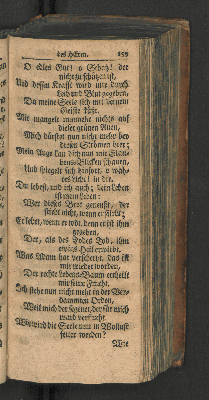 des HErrn. 159
O edles Gut! o Schatz! der
nicht zu schätzen ist,
Und dessen Krafft wird uns durch
Leib und Blut gegeben,
Da meine Seele sich mit deinem
Geiste küßt.
Mir mangelt nunmehr nichts auf
dieser grünen Auen,
Mich dürstet nun nicht mehr bey
diesen Ströhmen hier;
Mein Auge kan dich nun mit Glau-
bens-Blicken schauen,
Und spiegelt sich hinfort, o wah-
res Licht! in dir.
Du lebest, und ich auch; dein Leben
ist mein Leben:
Wer dieses Brot geneust, der
stirbet nicht, wenn er stirbt;
Er lebet, wenn er todt, denn er ist ihm
gegeben,
Der, als des Todes Tod, ihm
ewges Heil erwirbt.
Was Adam hat verscherzt, das ist
mir wieder worden,
Der rechte Lebens-Baum ertheilt
mir seine Frucht.
Ich stehe nun nicht mehr in der Ver-
dammten Orden,
Weil mich der segnet, der für mich
ward verflucht.
Wie wird die Seele nun in Wollust
fetter werden?
Wie